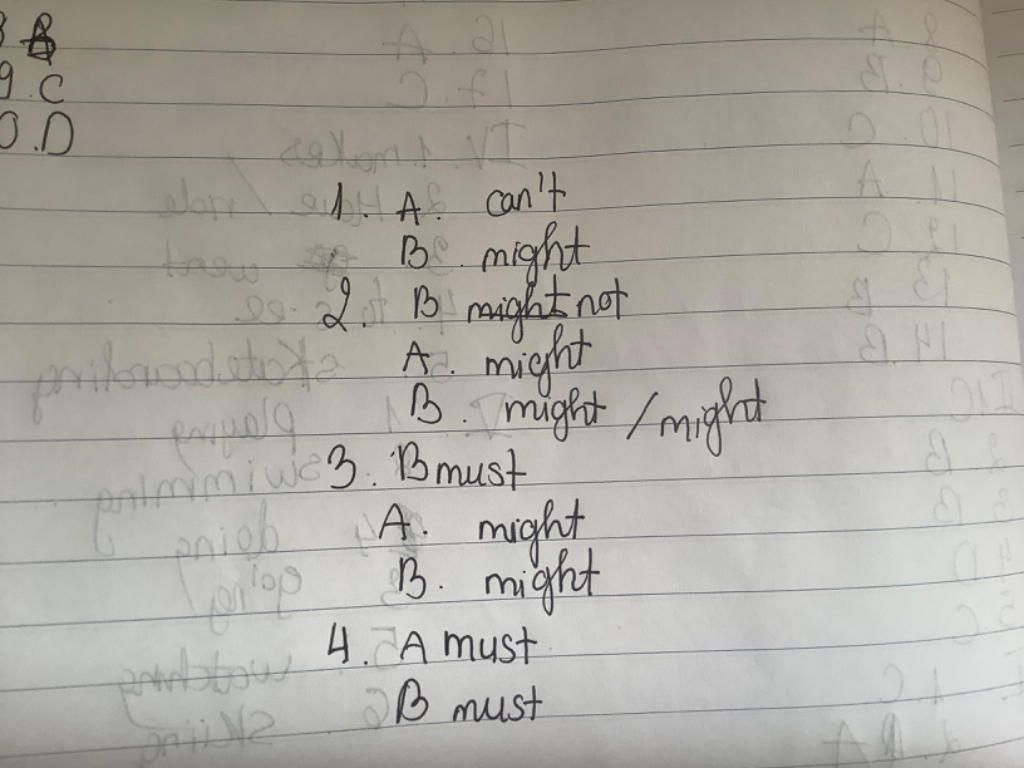 B
9. C
0. D
1. A. can't
B. might
2. B might not
A. might
B. might / might
3. B must
A. might
B. might
4. A must
B must